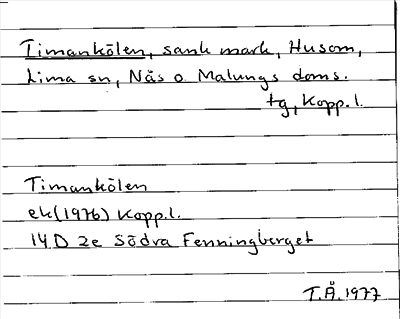 Timankölen, sank mark, Husom,
Lima sn, Nås o Malungs doms.
tg, Kopp.l.
Timankölen
ek(1976) Kopp.l.
14D 2e Södra Fenningberget
T.Å.1977